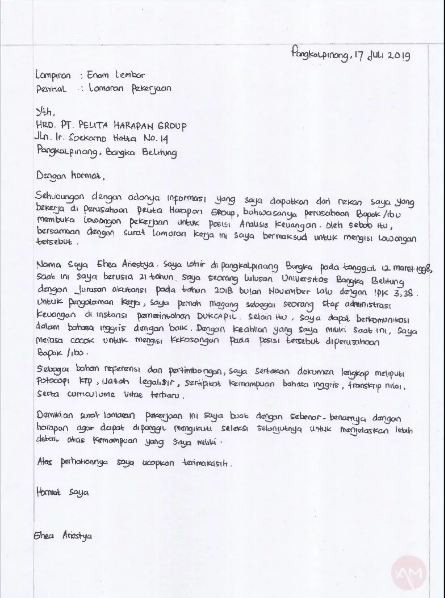 Pangkalpinang, 17 Juli 2019
Lampiran : Enam Lembar
Perihal : Lamaran Pekerjaan
Yth,
HRD. PT. PELITA HARAPAN GROUP
Jln. Ir. Soekarno Hatta No. 14
Pangkalpinang, Bangka Belitung
Dengan hormat,
Sehubungan dengan adanya informasi yang saya dapatkan dari rekan saya yang
bekerja di perusahaan Pelita Harapan Group, bahwasanya perusahaan Bapak/Ibu
membuka lowongan pekerjaan untuk posisi Analisis Keuangan. Oleh sebab itu,
bersamaan dengan surat lamaran kerja ini saya bermaksud untuk mengisi lowongan
tersebut.
Nama saya Ehea Ariestya. Saya lahir di pangkalpinang Bangka pada tanggal 12 maret 1998,
saat ini saya berusia 21 tahun. Saya seorang lulusan Universitas Bangka Belitung
dengan Jurusan akutansi pada tahun 2018 bulan November lalu dengan IPK 3,38.
Untuk pengalaman kerja, saya pernah magang sebagai seorang staf administrasi
keuangan di instansi pemerintahan DUKCAPIL. Selain itu, saya dapat berkomunikasi
dalam bahasa inggris dengan baik. Dengan keahlian yang saya miliki saat ini, saya
merasa cocok untuk mengisi kekosongan pada posisi tersebut diperusahaan
Bapak/Ibo.
Sebagai bahan referensi dan pertimbangan, saya sertakan dokumen lengkap meliputi
Fotocopi KTP, ijazah legalisir, sertipikat kemampuan bahasa inggris, transkrip nilai,
serta curriculume vitae terbaru.
Demikian surat lamaran pekerjaan ini saya buat dengan sebenar-benarnya dengan
harapan agar dapat dipanggil mengikuti seleksi selanjutnya untuk menjelaskan lebih
detail atas kemampuan yang saya miliki.
Atas perhatiannya saya ucapkan terimakasih.
Hormat saya
Ehea Ariestya
AM